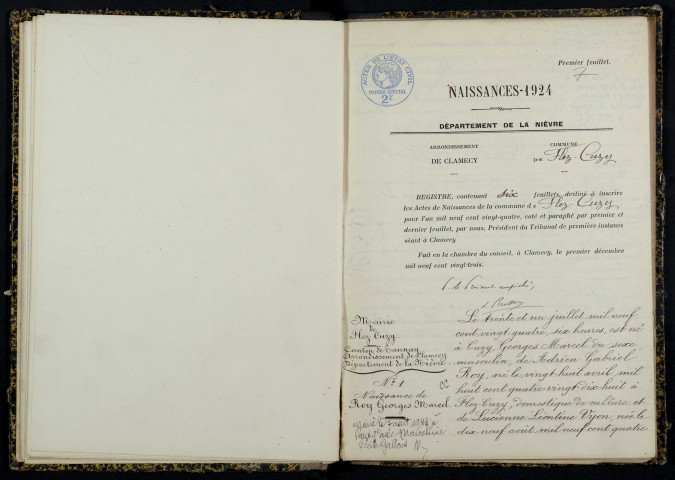 Premier feuillet.
ACTES DE L'ÉTAT CIVIL
PAPIER SPÉCIAL
2F
NAISSANCES-1924
DÉPARTEMENT DE LA NIÈVRE
ARRONDISSEMENT
DE CLAMECY
COMMUNE
D de Flez-Cuzy
REGISTRE, contenant six feuillets, destiné à inscrire
les Actes de Naissances de la commune de Flez Cuzy
pour l'an mil neuf cent vingt-quatre, coté et paraphé par premier et
dernier feuillet, par nous, Président du Tribunal de première instance
séant à Clamecy
Fait en la chambre du conseil, à Clamecy, le premier décembre
mil neuf cent vingt-trois.
Mairie
de
Flez Cuzy
Canton de Tannay
Arrondissement de Clamecy
Département de la Nièvre
No 1
Naissance de
Roy Georges Marcel
Le trente et un juillet mil neuf
cent vingt quatre, six heures, est né
à Cuzy, Georges Marcel du sexe
masculin, de Adrien Gabriel
Roy, né le vingt huit avril, mil
huit cent quatre-vingt dix huit à
Flez-Cuzy, domestique de culture et
de Lucienne Léontine Vyon, née le
dix neuf août, mil neuf cent quatre